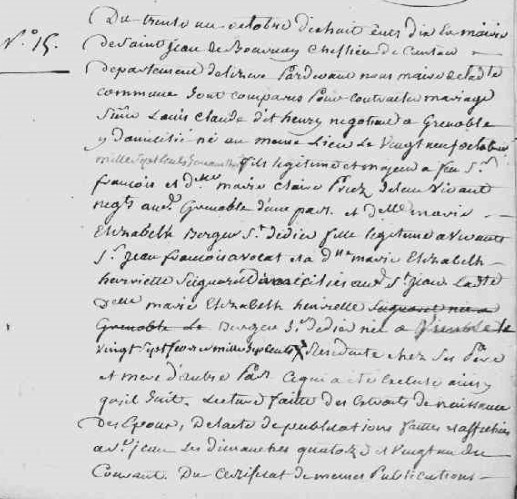 N.º 15.
Du trente un octobre dix huit cent dix la mairie
de Saint jean de Bournay Cheflieu de Canton
departement de lizere Pardevant nous maire de ladte
commune Sont comparus Pour contracter mariage
Sieur Louis Claude henry negotiant a Grenoble
y domicilié né au meme Lieu Le Vingt neuf octobre
mille Sept Cents fils legitime et majeur a feu Sr.
françois et de marie Claire de leur Vivant
negts aud. Grenoble d'une part. et Delle marie
Elizabeth Berger St. Dedier fille legitime a Vivants
Sr. jean françois avocat et a De marie Elizabeth
henriette Domiciliés aud. St. jean Ladte
Delle marie Elizabeth henriette née a
Grenoble Le Berger St. Dedier née a Grenoble le
Vingt Sept fevrier mille Sept Cents Residente chez Ses Père
et mere d'autre Part. Ce qui a eté Exclus ainsy
quil Suit. Lecture faite des Extraits de naissance
des Epoux, de lacte de publications faites et affichées
a St. jean Les dimanches quatorze et Vingt un du
Courant. Du Certificat de memes Publications